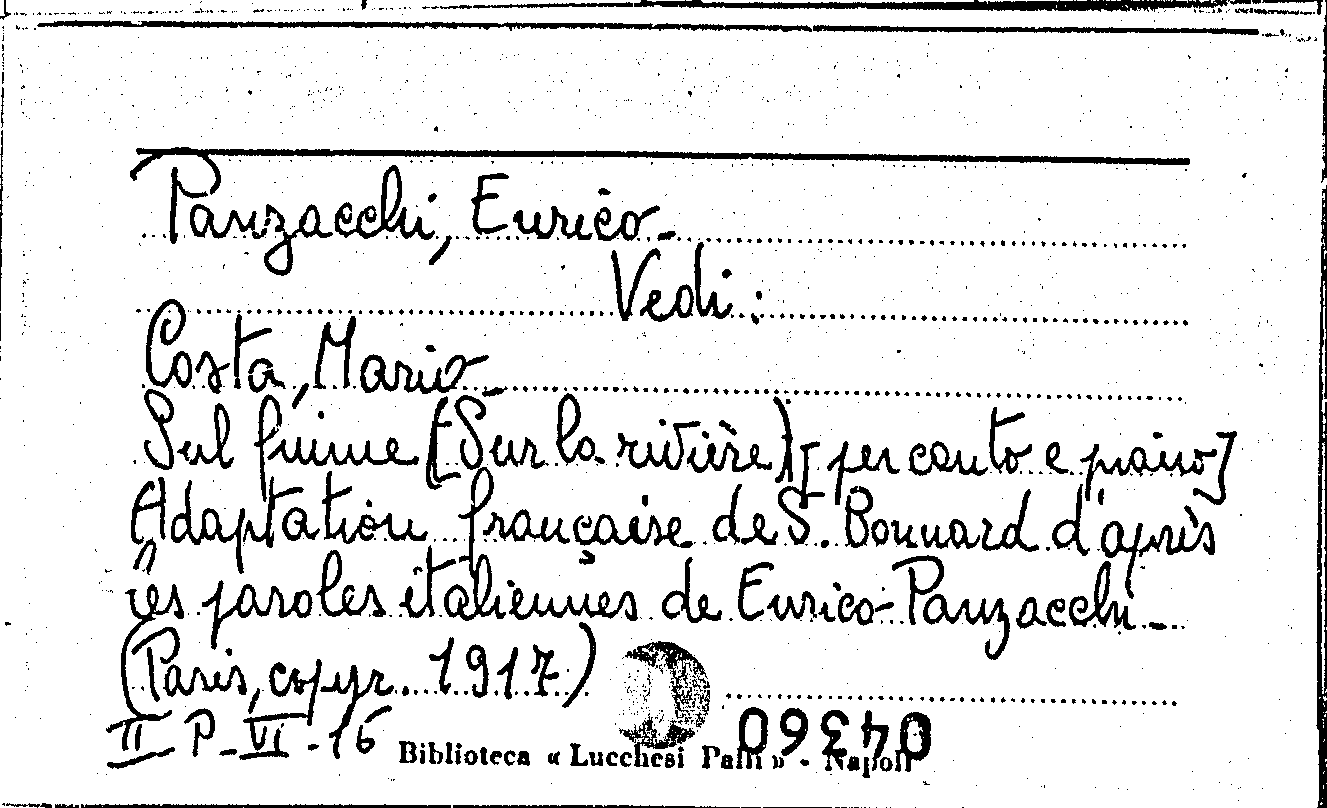 Panzacchi, Enrico -
Vedi:
Costa, Mario -
Sul fiume (Sur la rivière) [per canto e piano]
Adaptation française de S. Bonnard d'après
les paroles italiennes de Enrico Panzacchi -
(Paris, copyr. 1917)
II P-VI-16
Biblioteca « Lucchesi Palli » - Napoli
04360